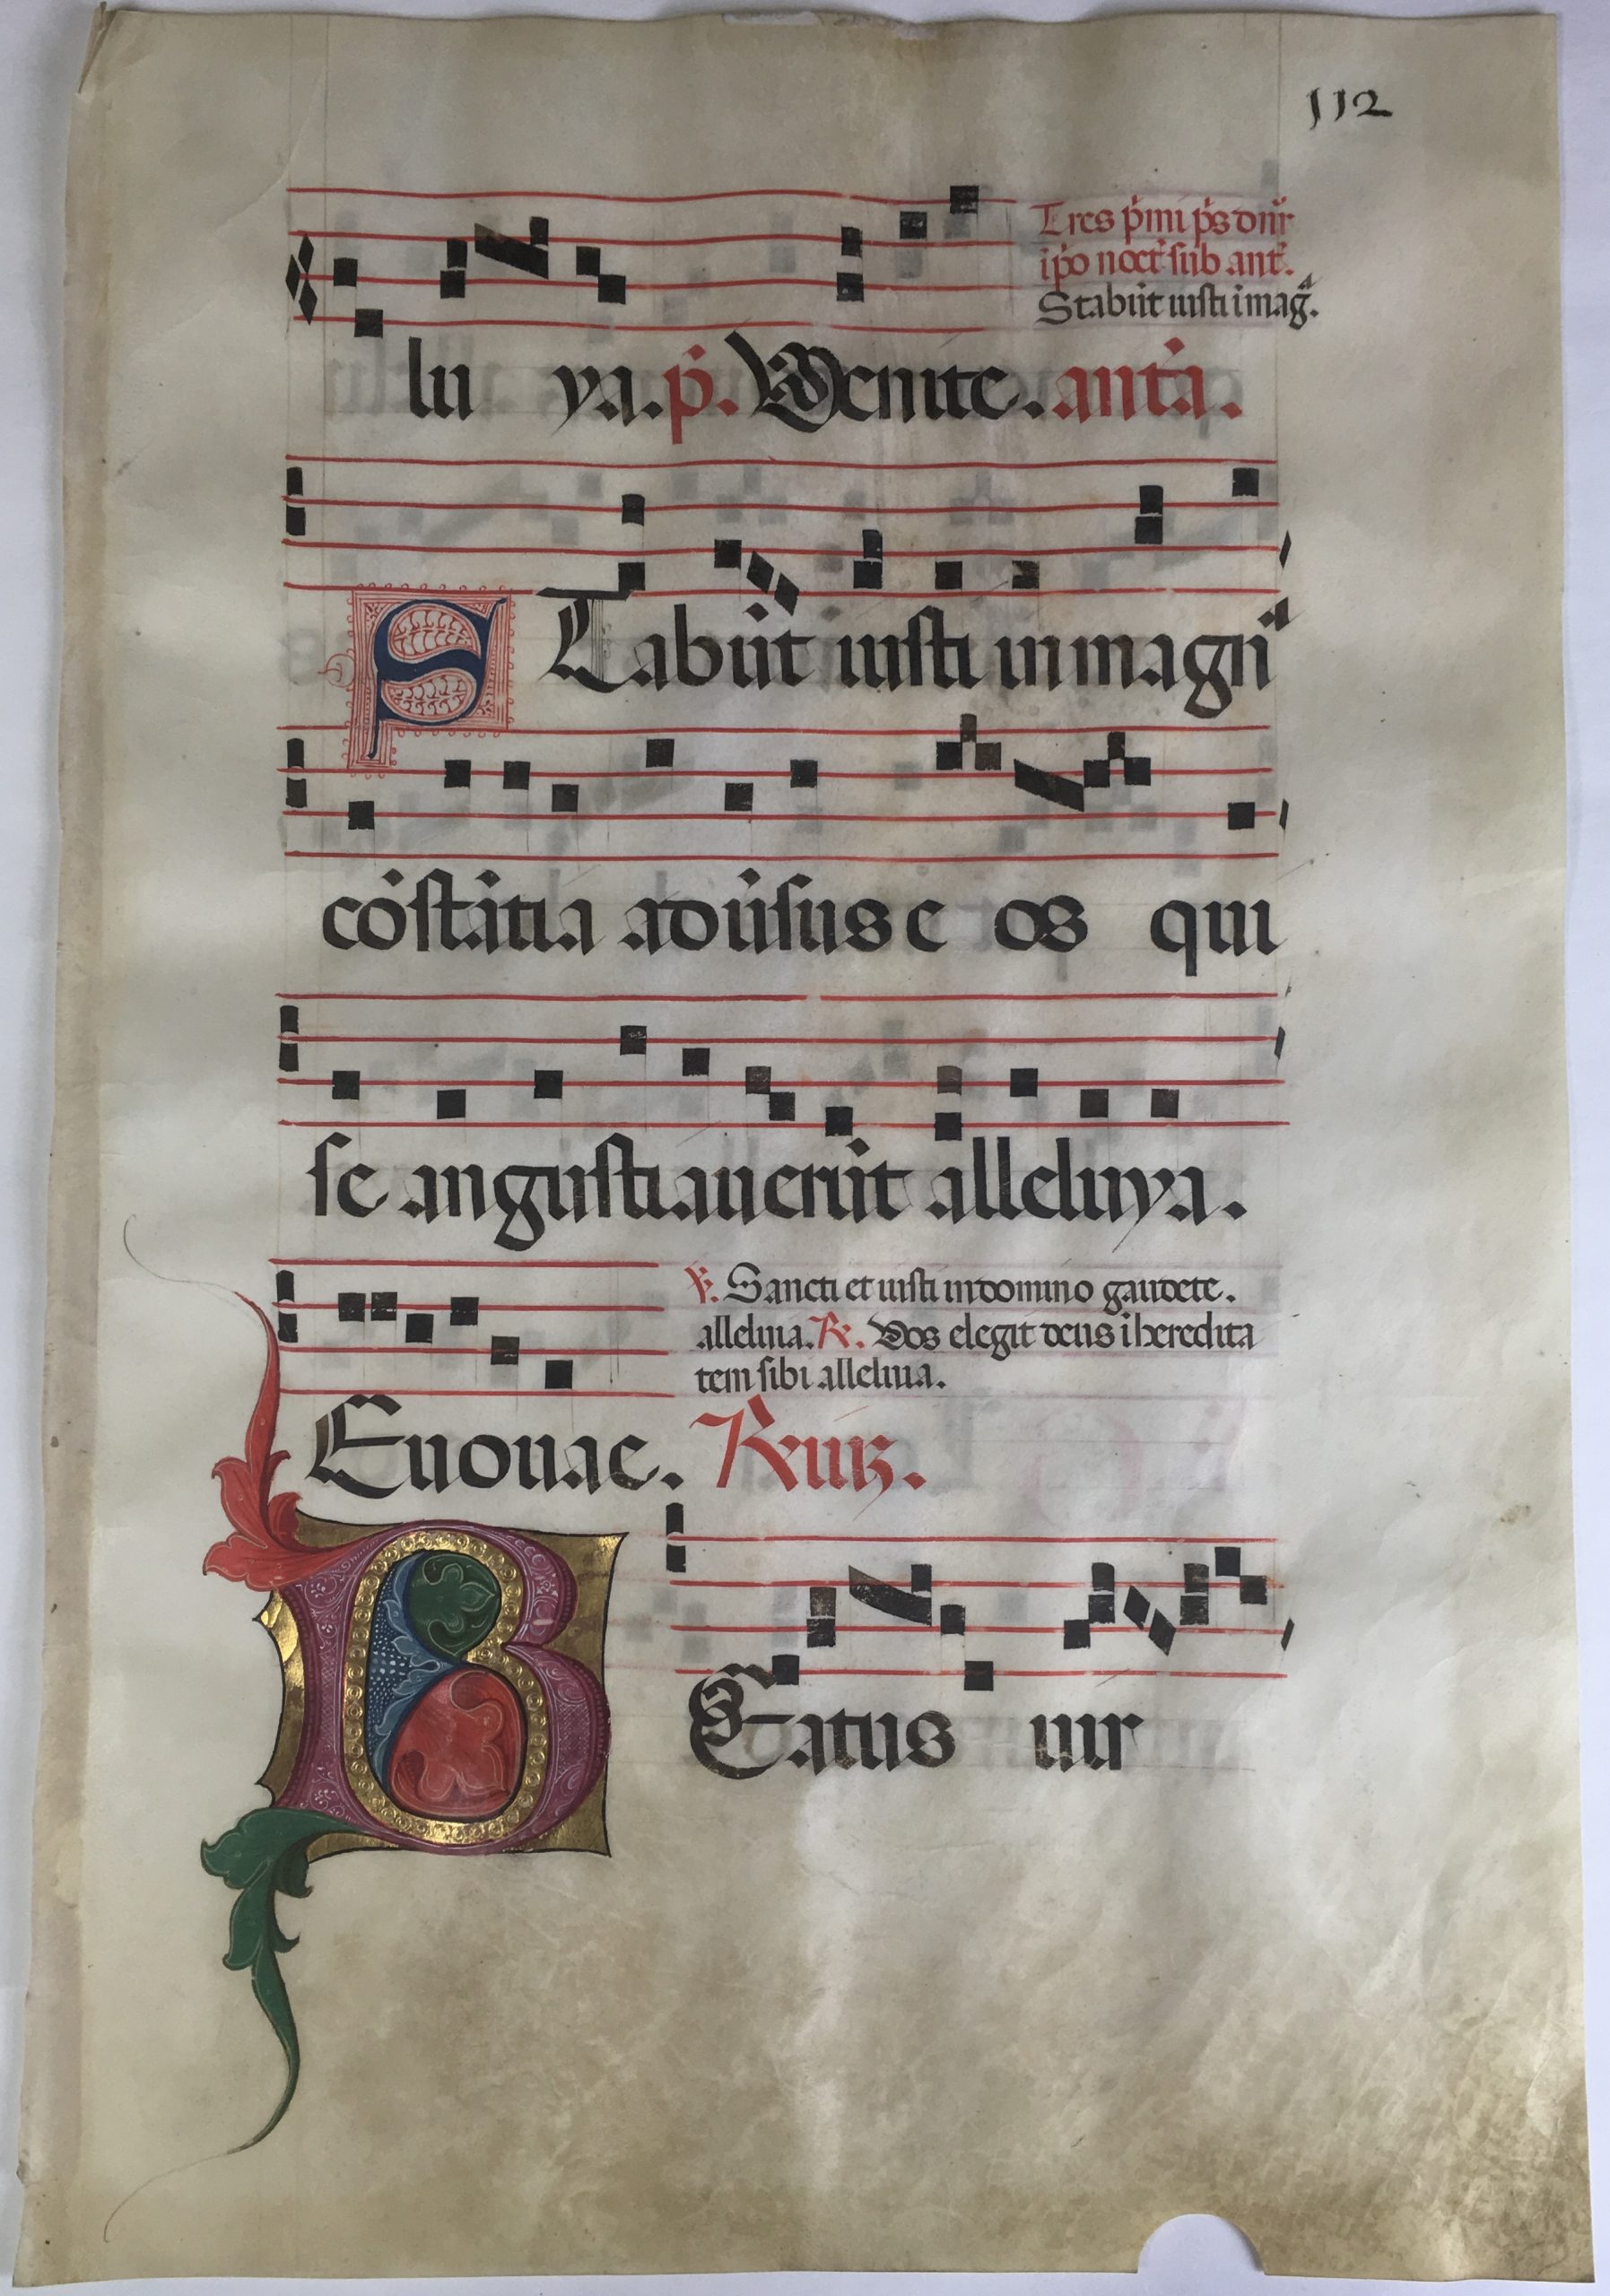 112
Tres p̄mi p̄s dn̄r
ip̄o noct̄ sub ant̄.
Stabūt iusti imaḡ.
lu ya. p̄. Venite. ant̄a.
STabūt iusti in magn̄a
cōstātia adūsus e os qui
se angustiauerūt alleluya.
℣. Sancti et iusti in domino gaudete.
alleluia. ℟. Vos elegit deus i heredita
tem sibi alleluia.
Euouae.
BEatus uir